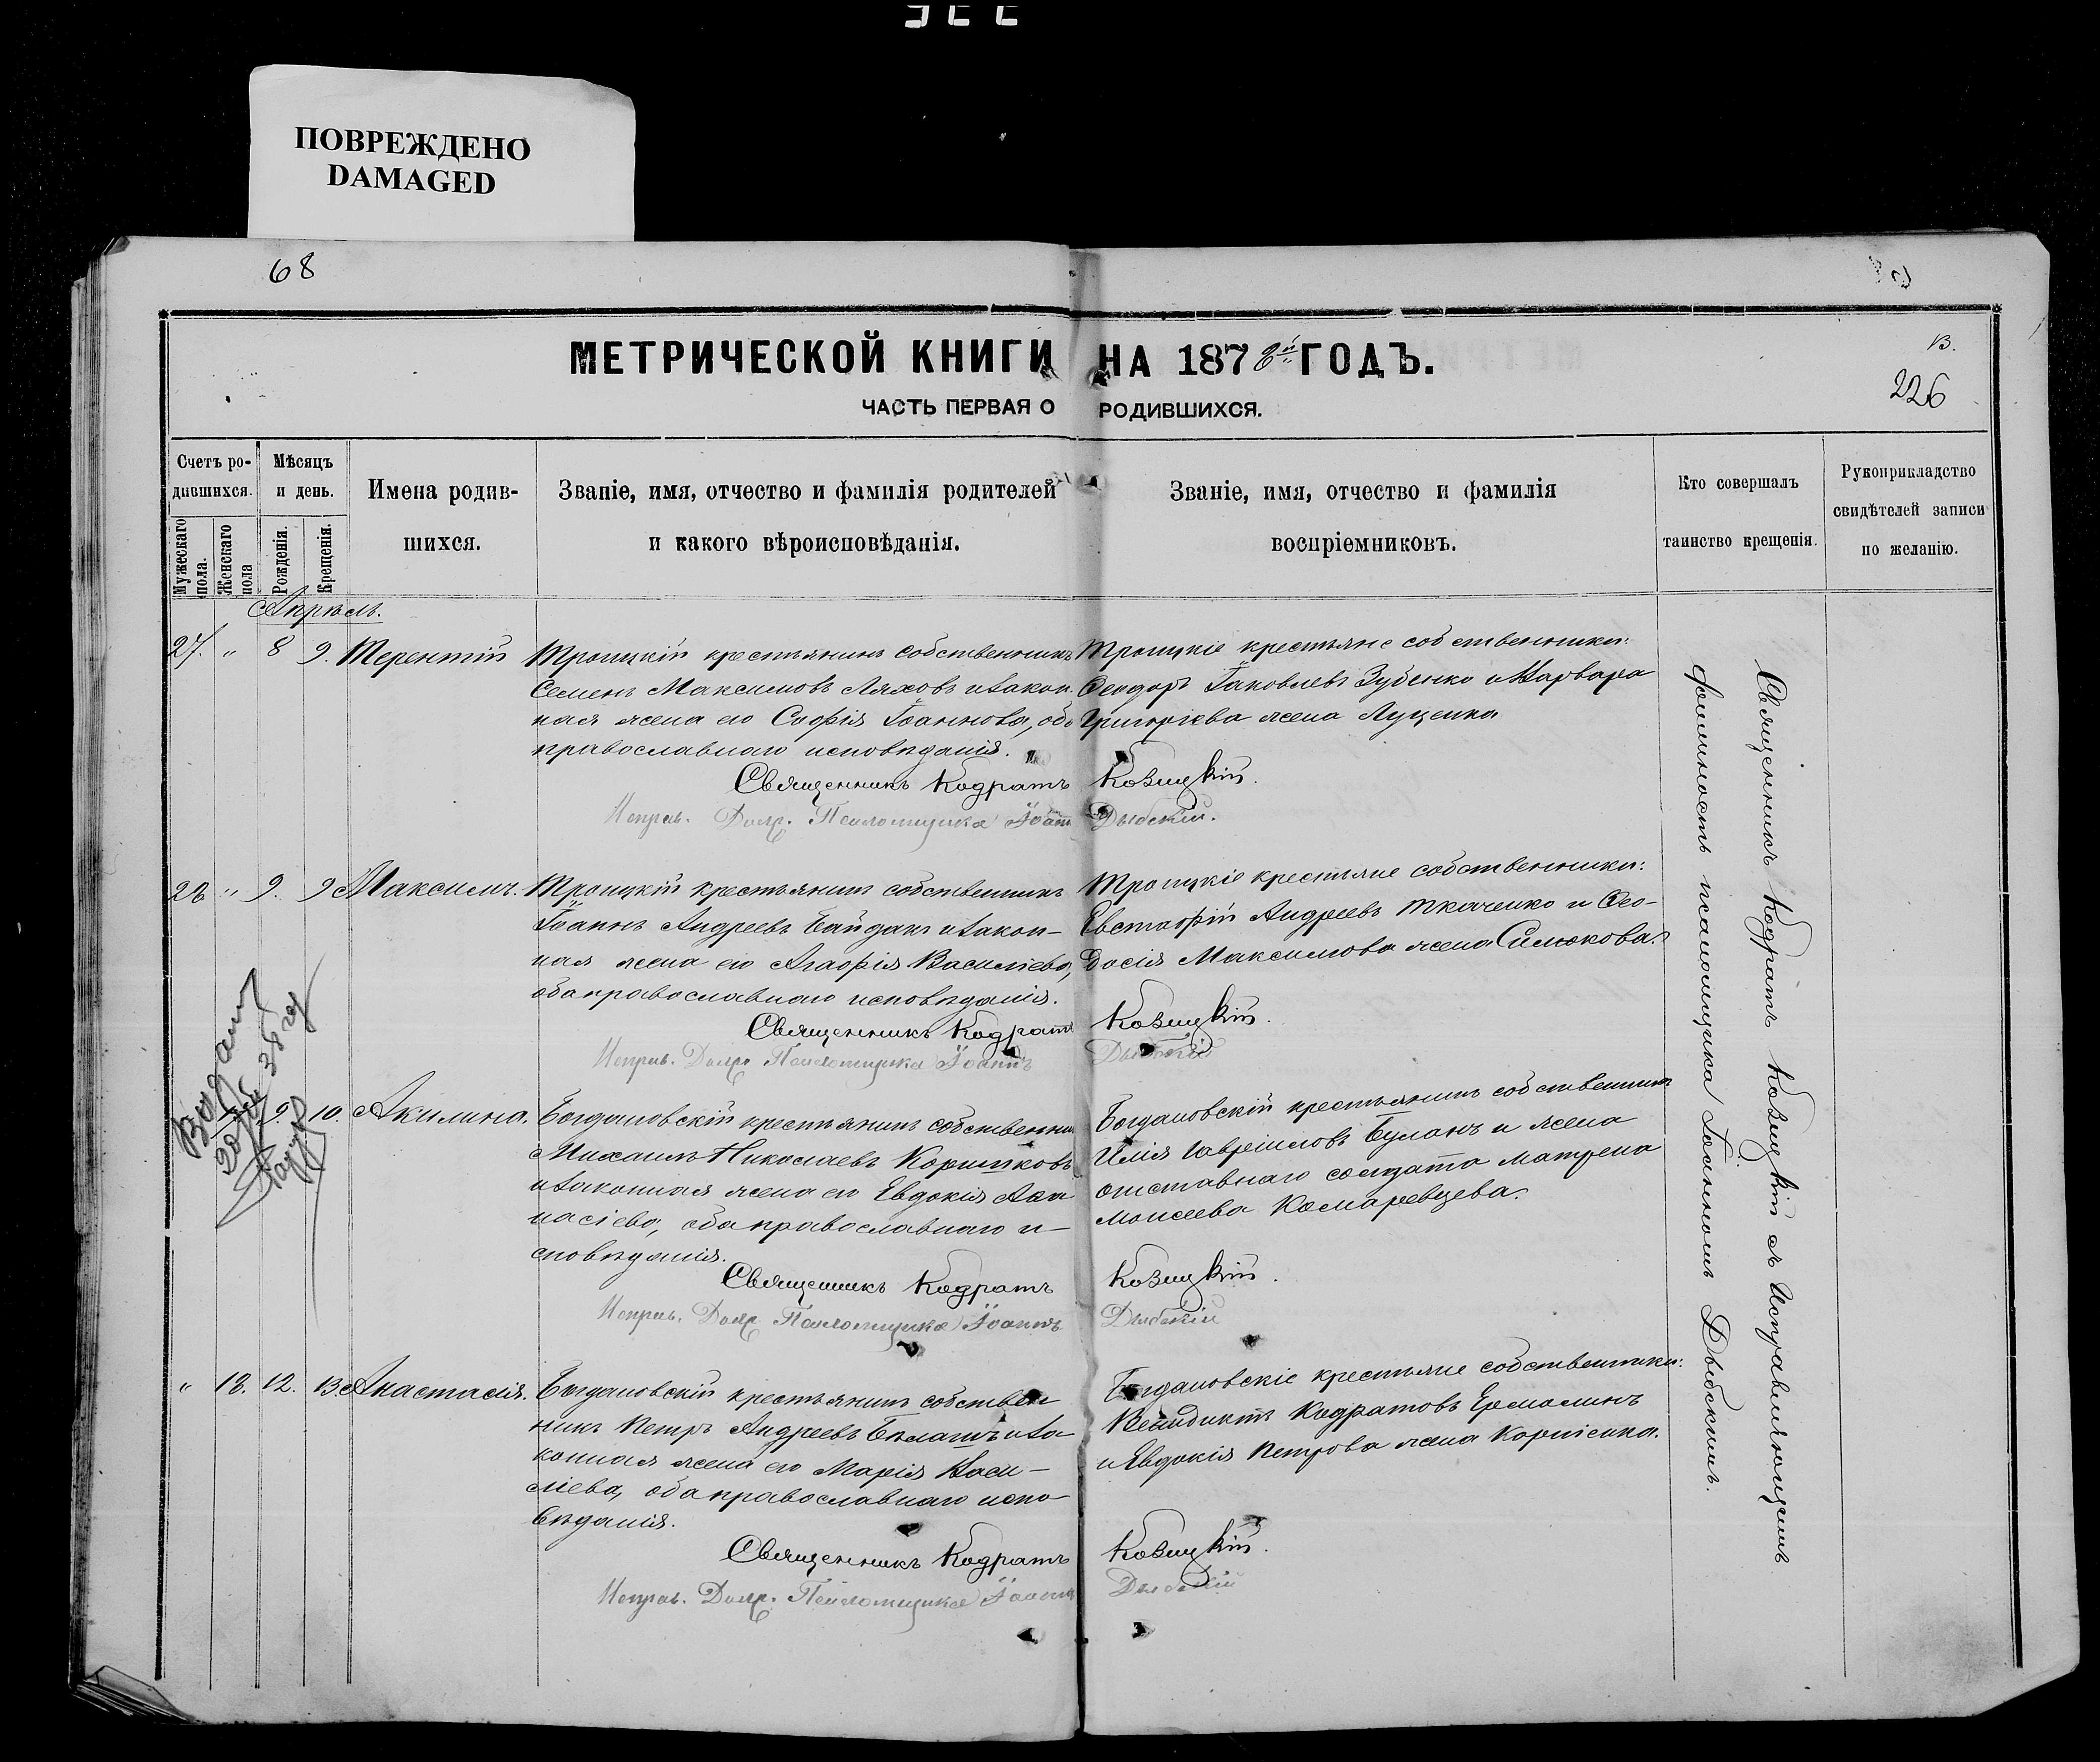 ПОВРЕЖДЕНО
DAMAGED
68
МЕТРИЧЕСКОЙ КНИГИ НА 1878й ГОДЪ.
ЧАСТЬ ПЕРВАЯ О РОДИВШИХСЯ.
226
Счетъ родившихся.
Мужескаго пола.
Женскаго пола
Мѣсяцъ и день.
Рожденія.
Крещенія.
Имена родив-
шихся.
Званіе, имя, отчество и фамилія родителей
и какого вѣроисповѣданія.
Званіе, имя, отчество и фамилія
воспріемниковъ.
Кто совершалъ
таинство крещенія.
Рукоприкладство
свидѣтелей записи
по желанію.
Апрѣль.
27. " 8 9. Терентій
Троицкій крестьянинъ собственникъ
Семенъ Максимовъ Ляховъ и закон-
ная жена его Софія Іоаннова, оба
православнаго исповѣданія.
Троицкіе крестьяне собственники:
Ѳеодоръ Іаковлевъ Зубенко и Варвара
Григоріева жена Луценка
Священникъ Кодратъ Козицкій.
Исправ. Долж. Псаломщика Іоаннъ Дыбскій.
28 " 9. 9 Максимъ.
Троицкій крестьянинъ собственникъ
Іоаннъ Андреевъ Байдакъ и закон-
ная жена его Агафія Василіева,
оба православнаго исповѣданія.
Троицкіе крестьяне собственники:
Евстафій Андреевъ Ткаченко и Ѳео-
досія Максимова жена Симокова.
Священникъ Кодратъ Козицкій.
Исправ. Долж. Псаломщика Іоаннъ Дыбскій
9. 10. Акилина.
Богдановскій крестьянинъ собственникъ
Михаилъ Николаевъ Коритковъ
и законная жена его Евдокія Аѳа-
насіева, оба православнаго и-
сповѣданія.
Богдановскій крестьянинъ собственникъ
Илія Гавріиловъ Буланъ и жена
отставнаго солдата Матрена
Моисеева Комаревцева.
Священникъ Кодратъ Козицкій.
Исправ. Долж. Псаломщика Іоаннъ Дыбскій
" 18. 12. 13. Анастасія.
Богдановскій крестьянинъ собствен
никъ Петръ Андреевъ Бѣлашъ и за-
конная жена его Марія Васи-
ліева, оба православнаго испо-
вѣданія.
Богдановскіе крестьяне собственники:
Венидиктъ Кодратовъ Ермолинъ
и Евдокія Петрова жена Корніенка.
Священникъ Кодратъ Козицкій.
Исправ. Долж. Псаломщика Іоаннъ Дыбскій
Священникъ Кодратъ Козицкій съ Исправляющимъ
должность псаломщика Іоанномъ Дыбскимъ.